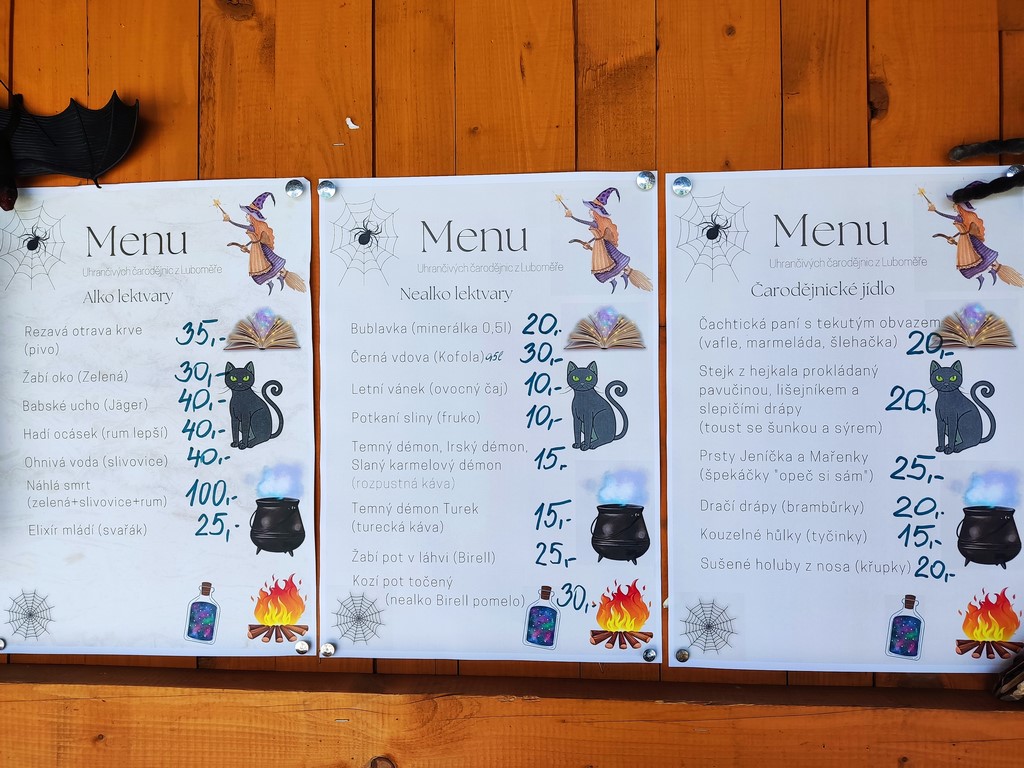 Menu
Uhrančivých čarodějnic z Luboměře
Alko lektvary
Rezavá otrava krve 35,-
(pivo)
Žabí oko (Zelená) 30,-
Babské ucho (Jäger) 40,-
Hadí ocásek (rum lepší) 40,-
Ohnivá voda (slivovice) 40,-
Náhlá smrt
(zelená+slivovice+rum) 100,-
Elixír mládí (svařák) 25,-
Menu
Uhrančivých čarodějnic z Luboměře
Nealko lektvary
Bublavka (minerálka 0,5l) 20,-
Černá vdova (Kofola) 0,5l 30,-
Letní vánek (ovocný čaj) 10,-
Potkaní sliny (fruko) 10,-
Temný démon, Irský démon,
Slaný karmelový démon 15,-
(rozpustná káva)
Temný démon Turek 15,-
(turecká káva)
Žabí pot v láhvi (Birell) 25,-
Kozí pot točený
(nealko Birell pomelo) 30,-
Menu
Uhrančivých čarodějnic z Luboměře
Čarodějnické jídlo
Čachtická paní s tekutým obvazem
(vafle, marmeláda, šlehačka) 20,-
Stejk z hejkala prokládaný
pavučinou, lišejníkem a
slepičími drápy 20,-
(toust se šunkou a sýrem)
Prsty Jeníčka a Mařenky
(špekáčky "opeč si sám") 25,-
Dračí drápy (brambůrky) 20,-
Kouzelné hůlky (tyčinky) 15,-
Sušené holuby z nosa (křupky) 20,-